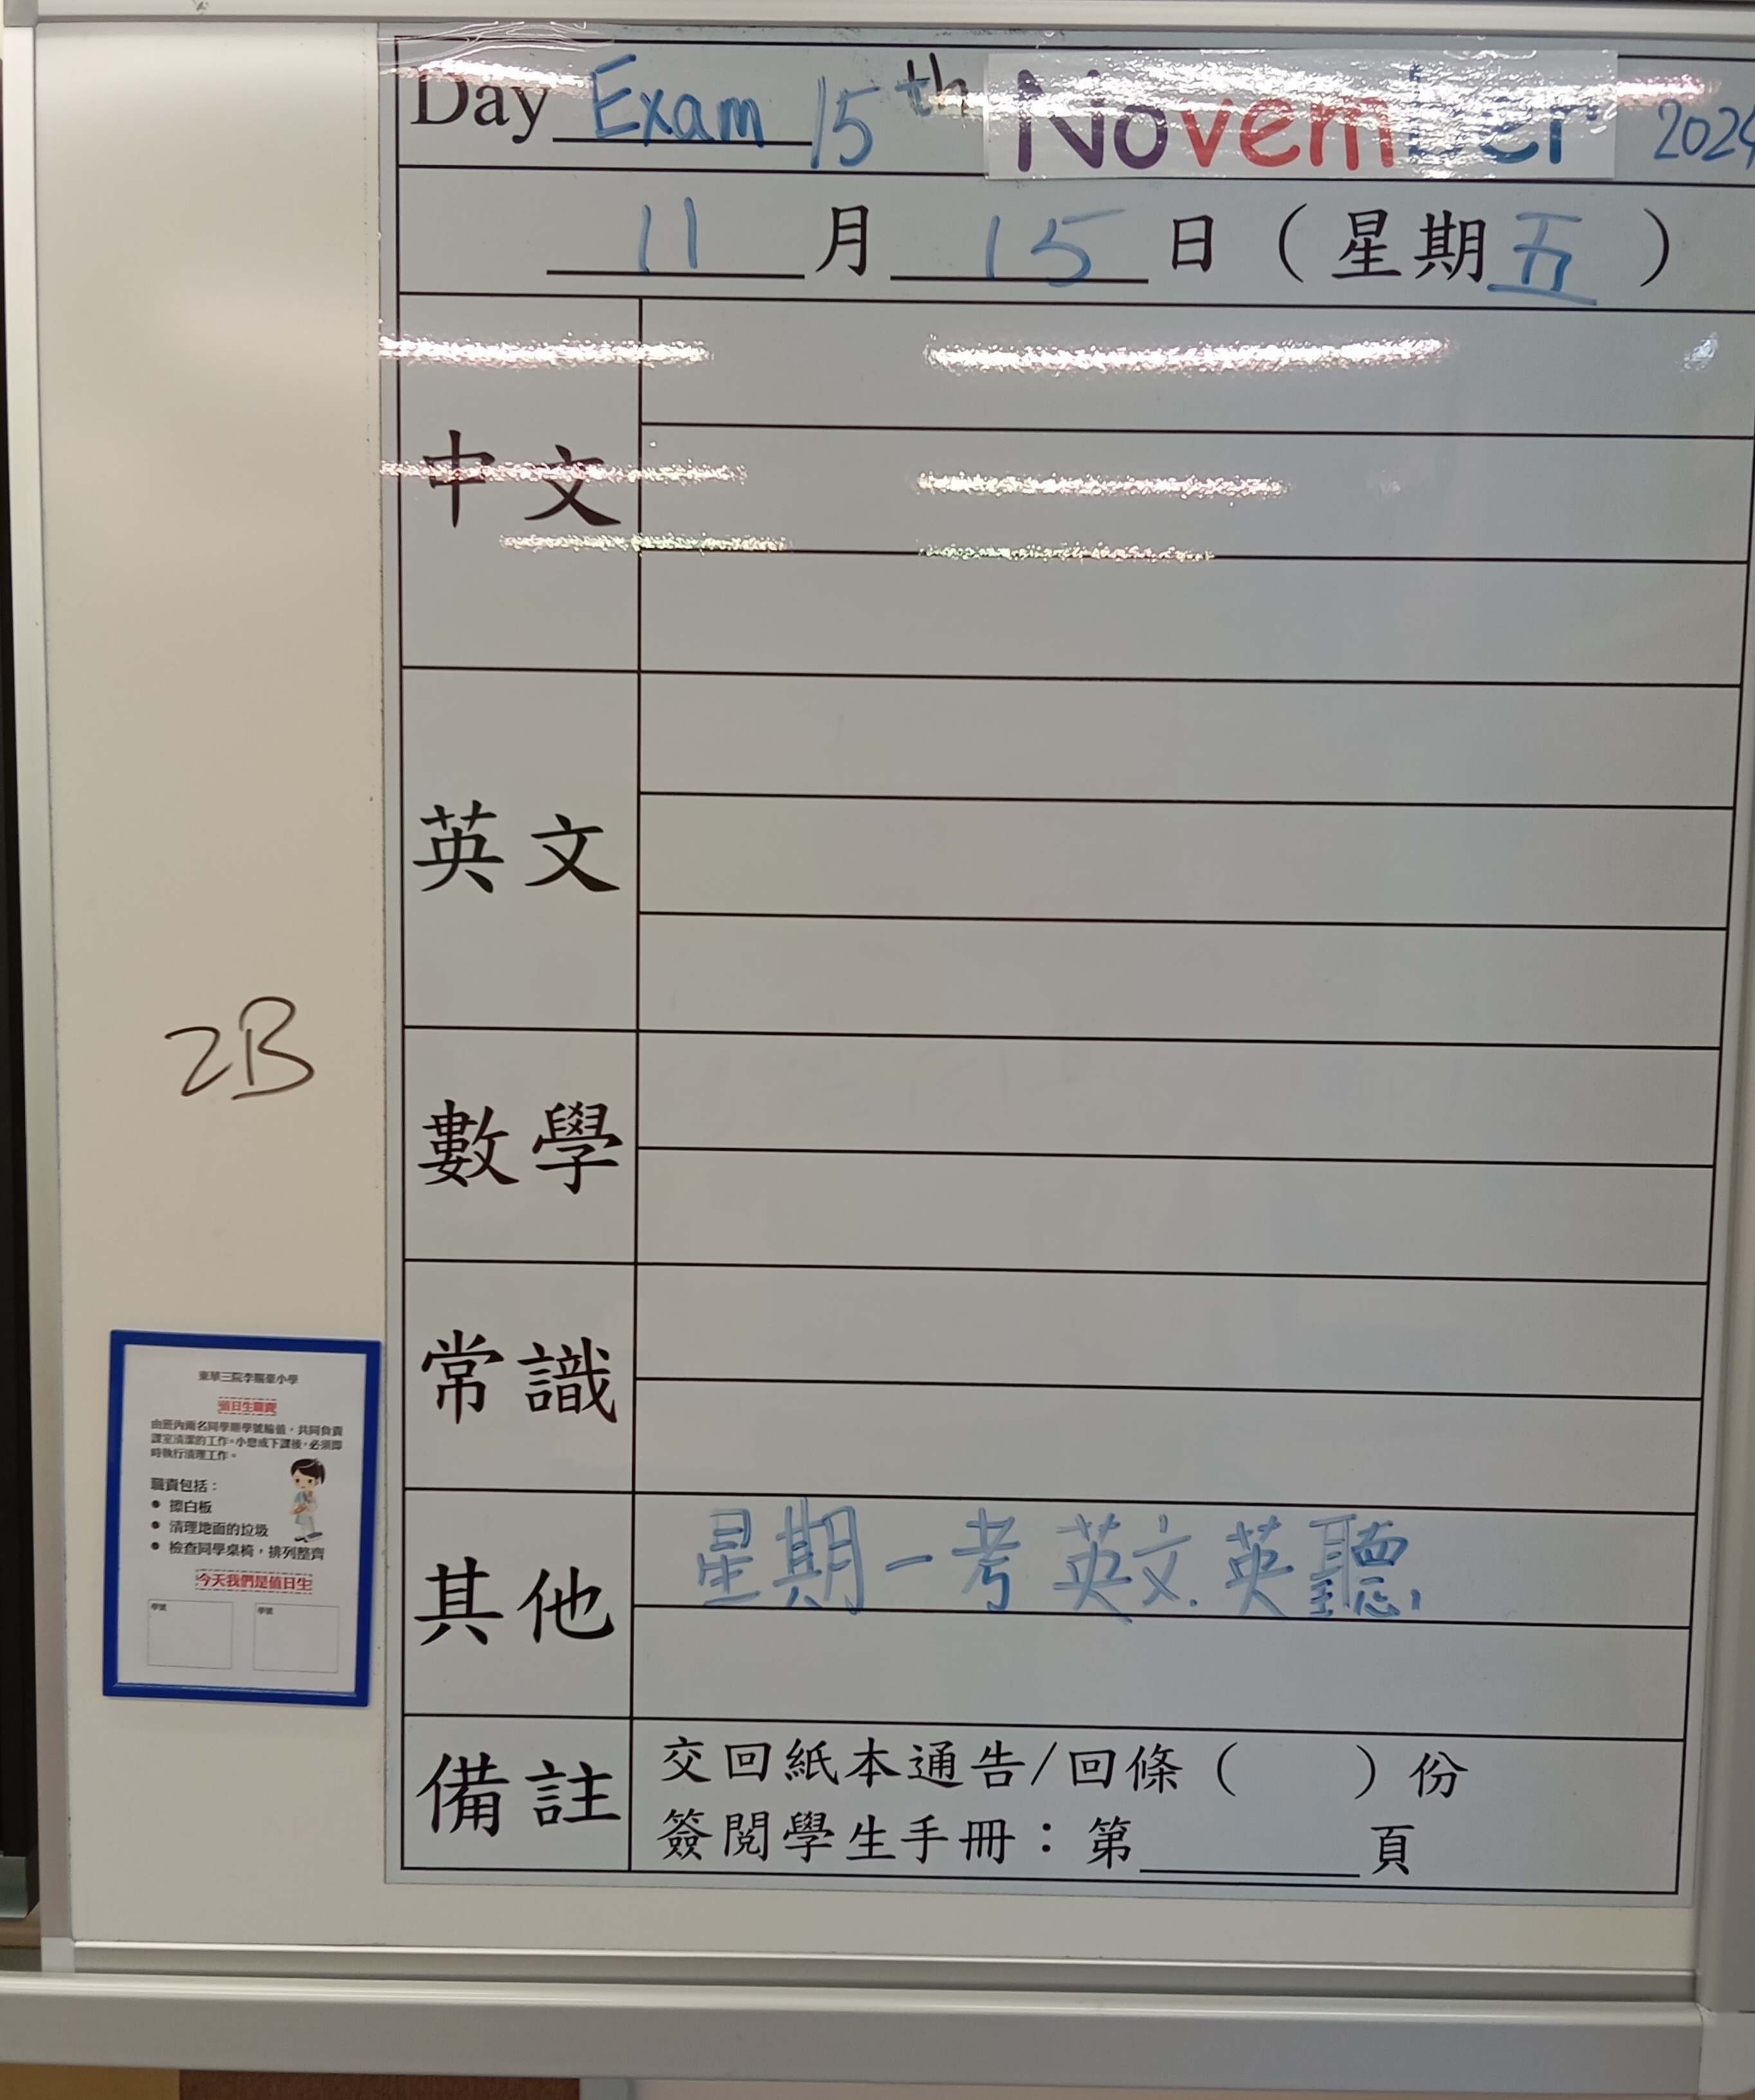 Day Exam 15th November 2024
11月15日（星期五）
中文
英文
2B
數學
常識
其他 星期一考英文.英聽,
備註 交回紙本通告/回條（ ）份
簽閱學生手冊：第____頁
值日生職責
由班內兩名同學順學號輪值，共同負責
課室清潔的工作。小息或下課後，必須即
時執行清理工作。
職責包括：
● 擦白板
● 清理地面的垃圾
● 檢查同學桌椅，排列整齊
今天我們是值日生
學號 學號